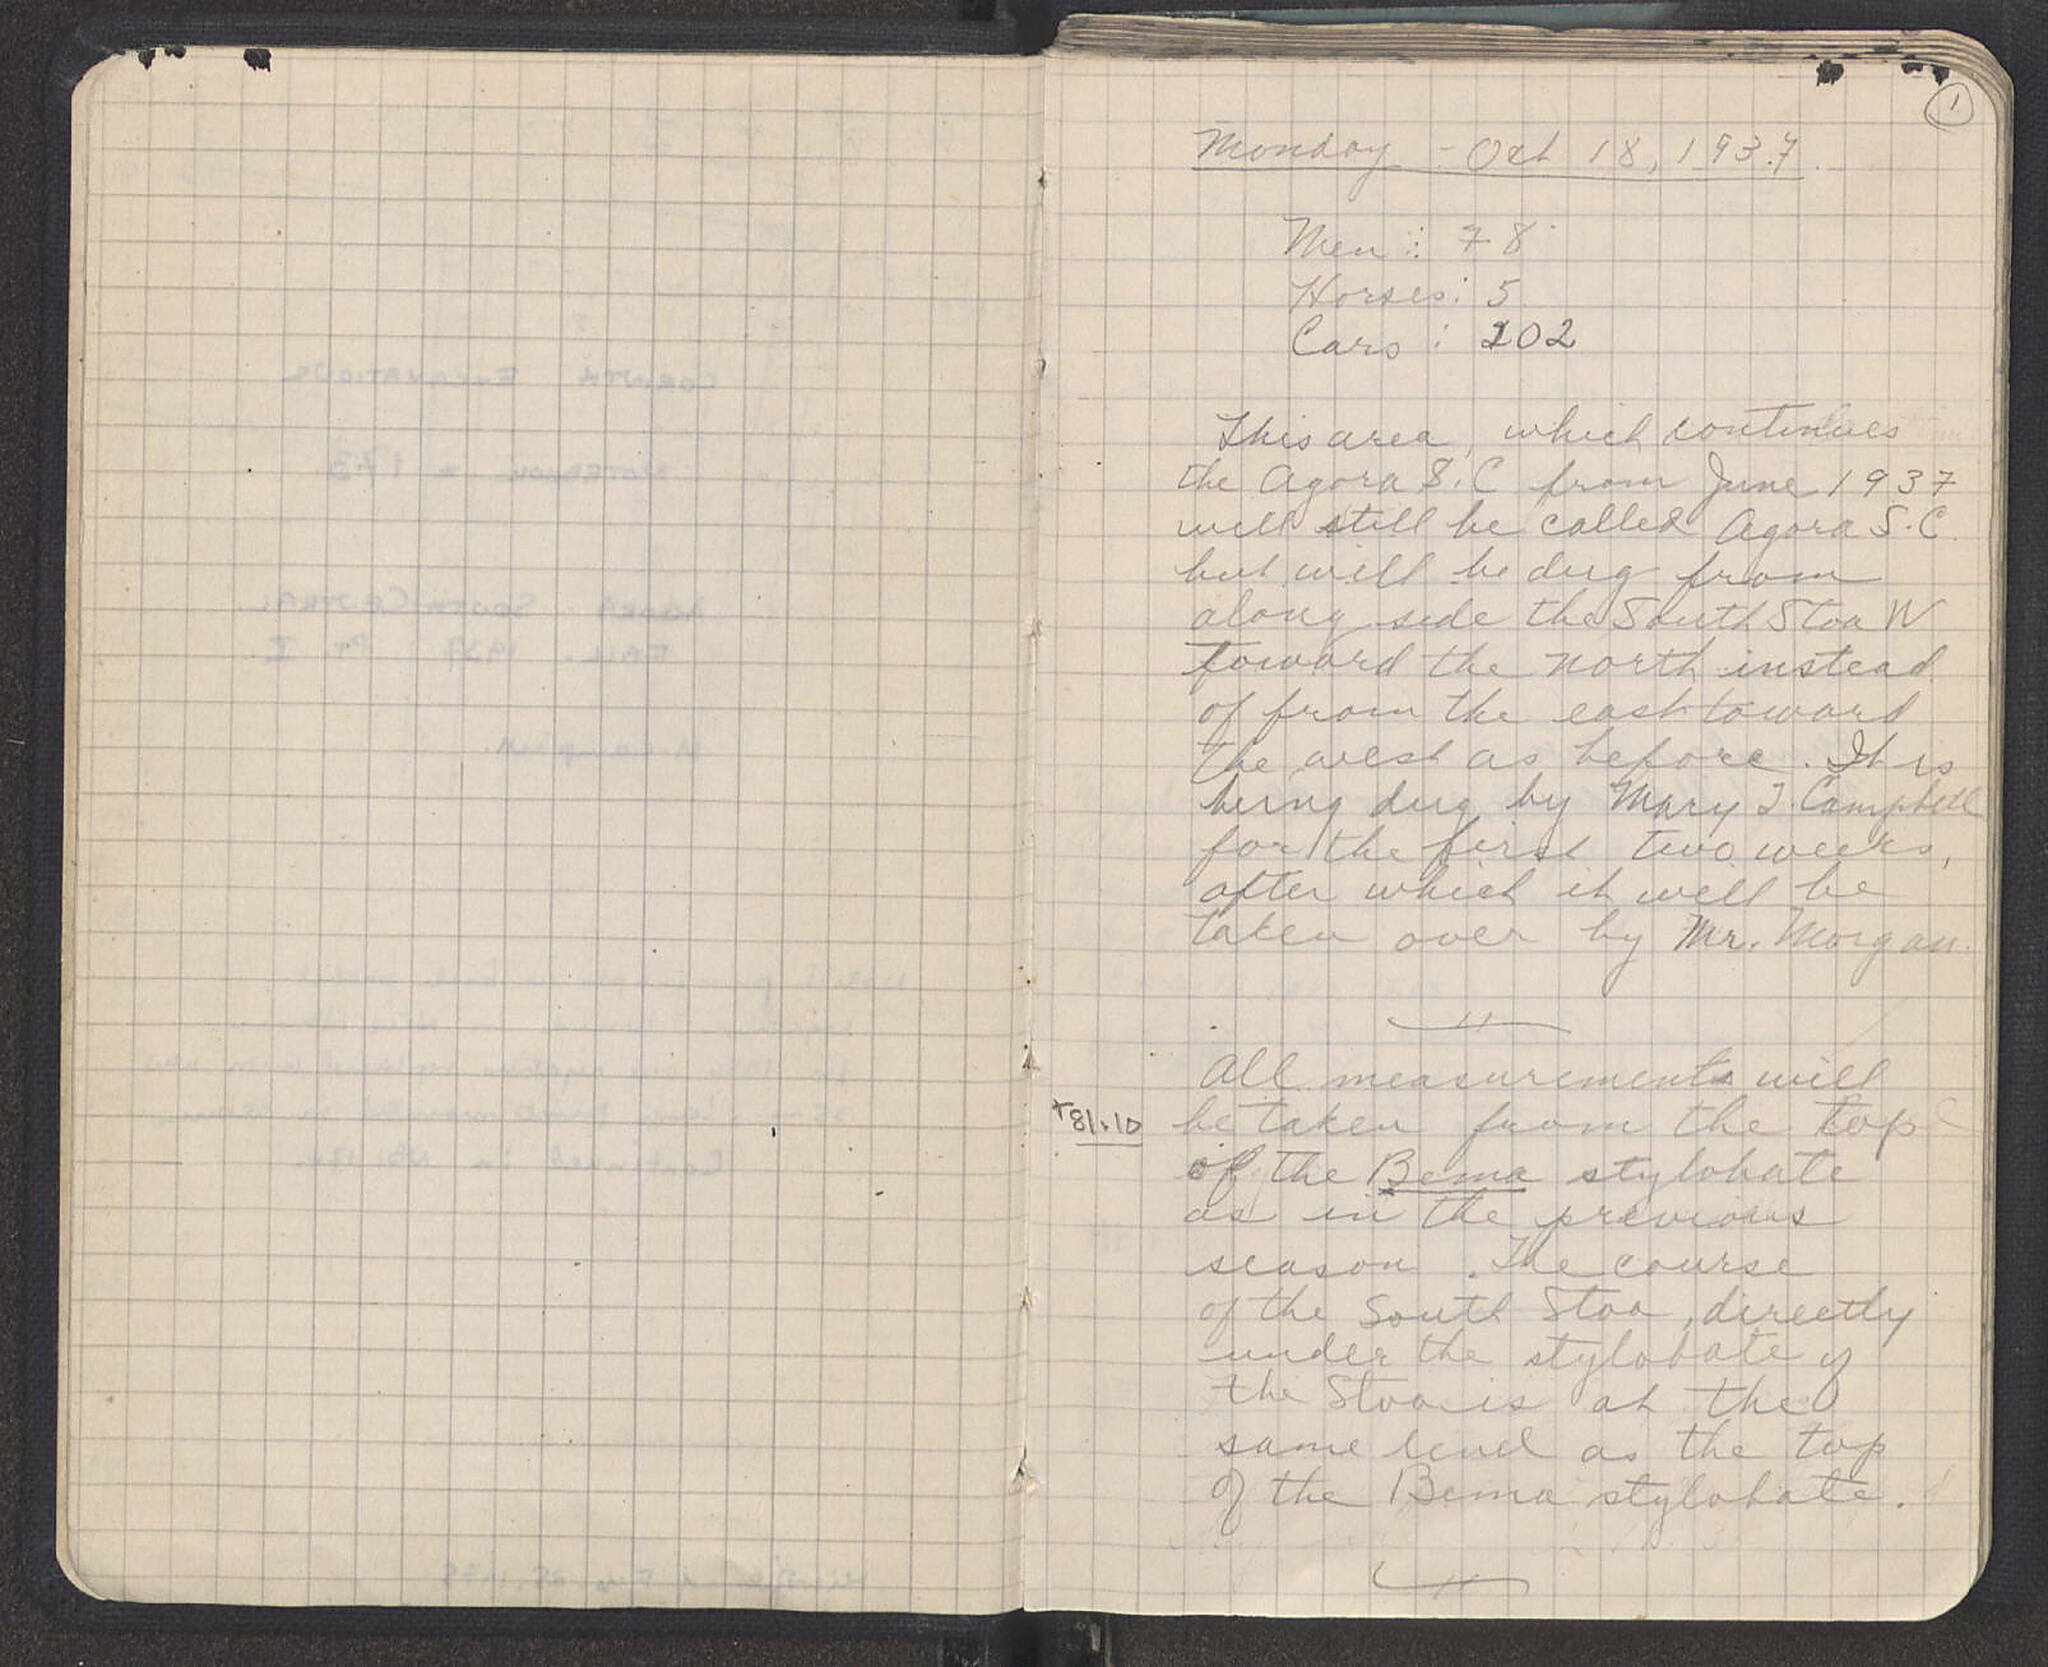 1
Monday - Oct 18, 1937.
Men : 78
Horses : 5
Cars : 202
This area, which continues
the Agora S.C from June 1937
will still be called Agora S.C.
but will be dug from
along side the South Stoa N
toward the north instead
of from the east toward
the west as before. It is
being dug by Mary J. Campbell
for the first two weeks,
after which it will be
taken over by Mr. Morgan.
All measurements will
+81.10 be taken from the top
of the Bema stylobate
as in the previous
season. The course
of the South Stoa, directly
under the stylobate of
the Stoa is at the
same level as the top
of the Bema stylobate.